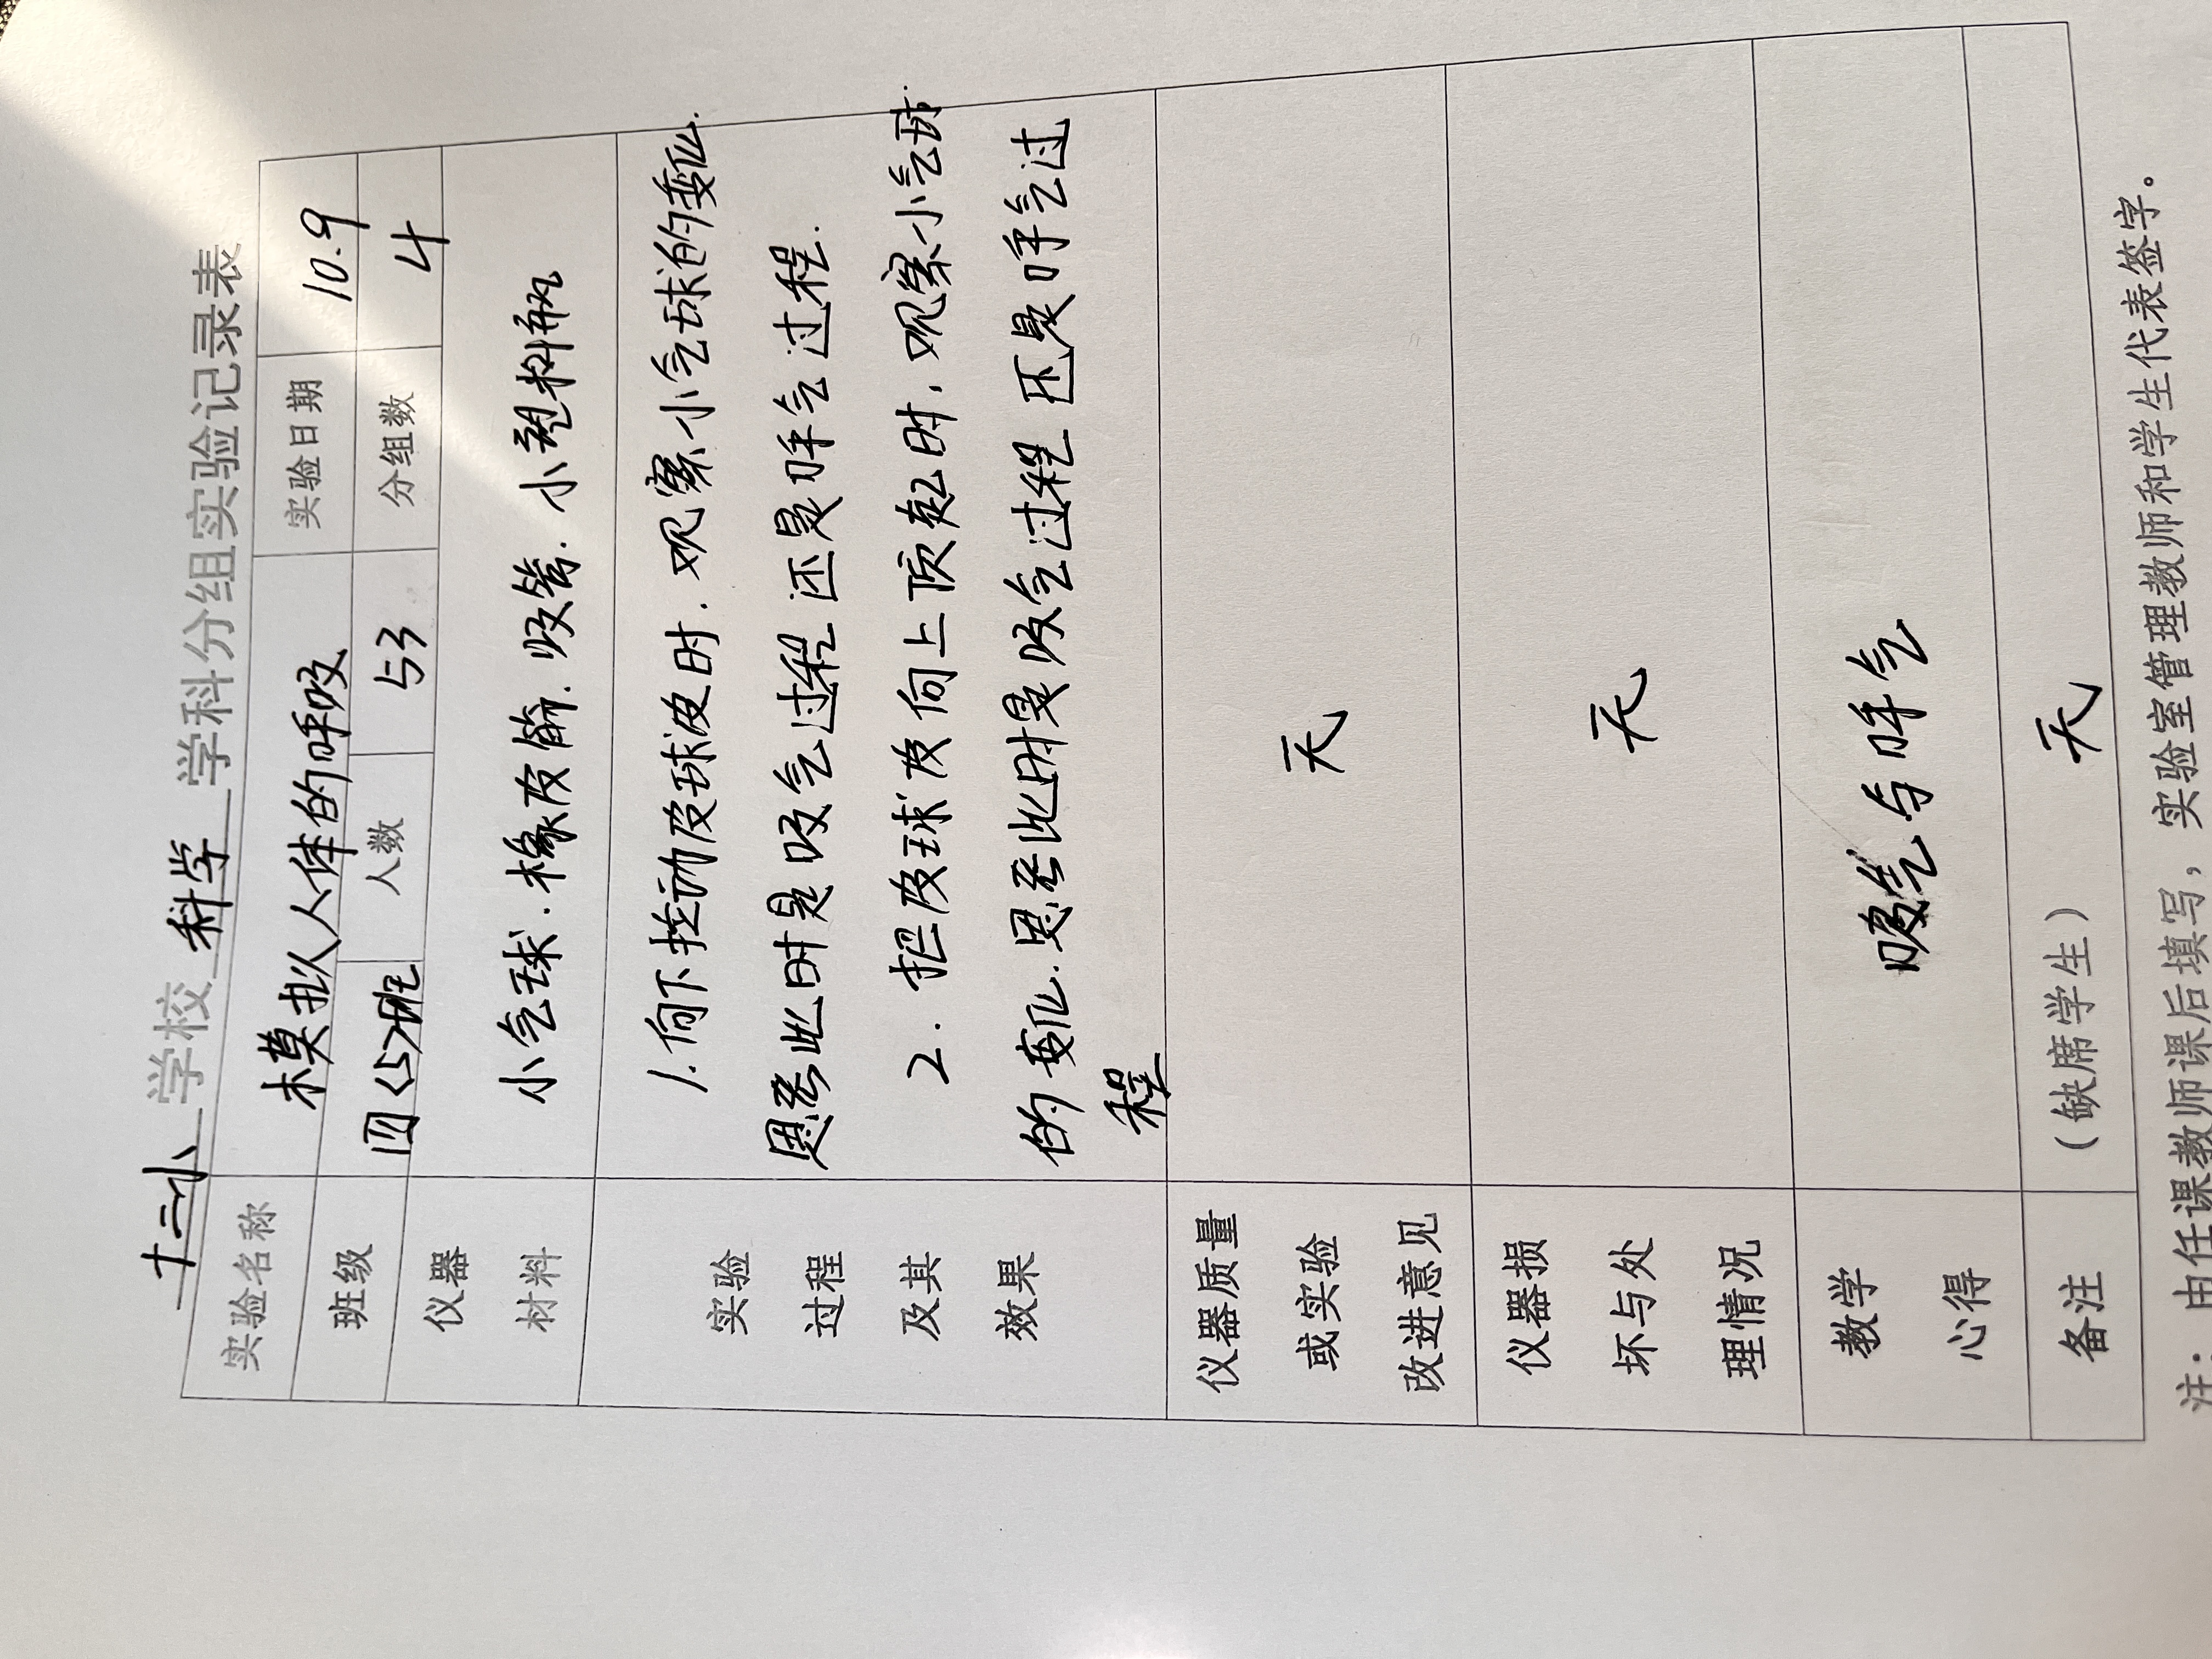 十二小 学校 科学 学科分组实验记录表
实验名称 模拟人体的呼吸 实验日期 10.9
班级 四<5>班 人数 53 分组数 4
仪器
材料
小气球.橡皮筋.吸管.小塑料瓶
实验
过程
及其
效果
1.向下拉动皮球皮时.观察小气球的变化.
思考此时是吸气过程还是呼气过程.
2.把皮球皮向上顶起时,观察小气球
的变化.思考此时是吸气过程还是呼气过
程
仪器质量
或实验
改进意见
无
仪器损
坏与处
理情况
无
教学
心得
吸气与呼气
备注 (缺席学生) 无
注:由任课教师课后填写,实验室管理教师和学生代表签字。